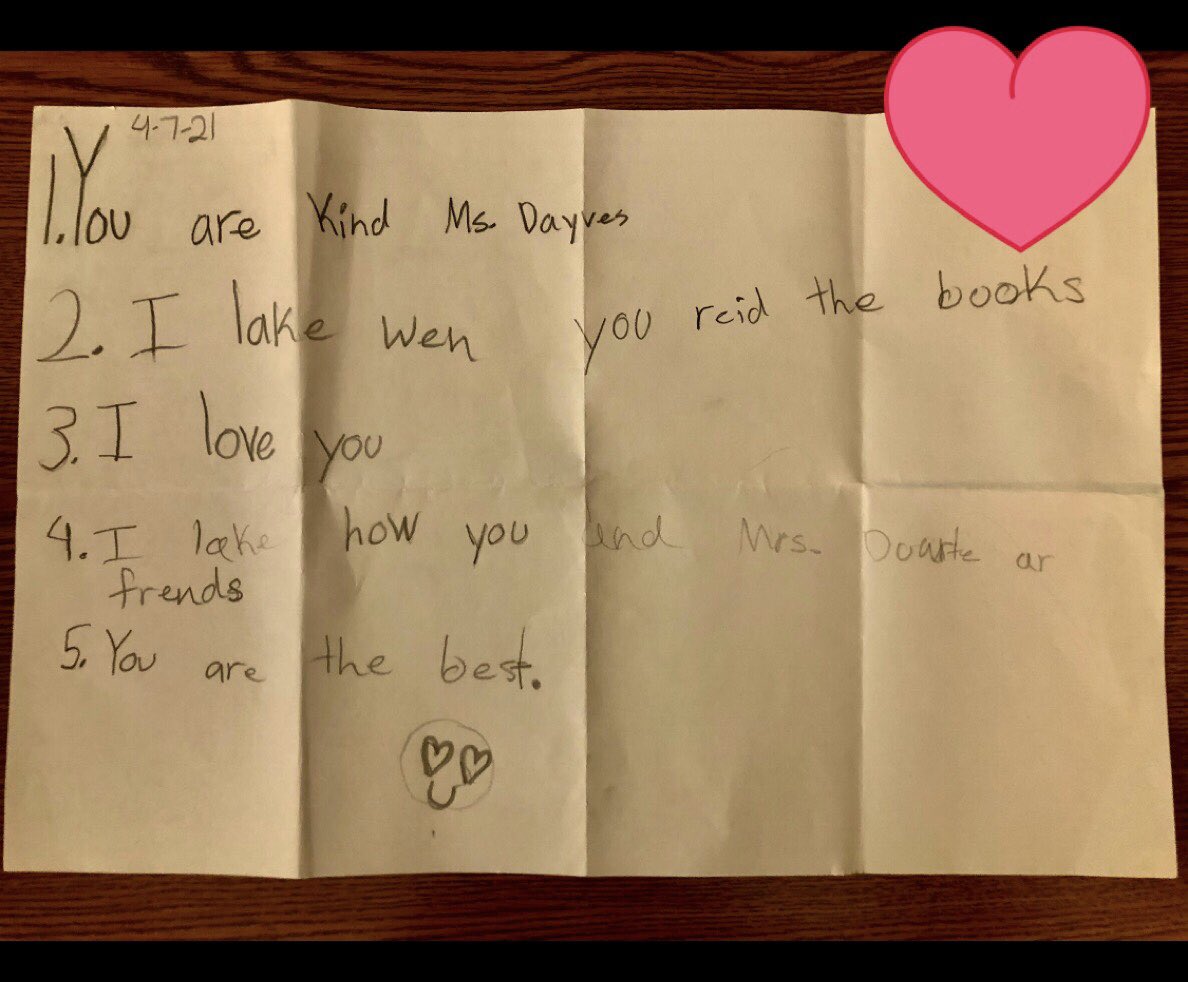 4-7-21
1. You are Kind Ms. Dayves
2. I lake wen you reid the books
3. I love you
4. I lake how you and Mrs. Duarte ar
frends
5. You are the best.